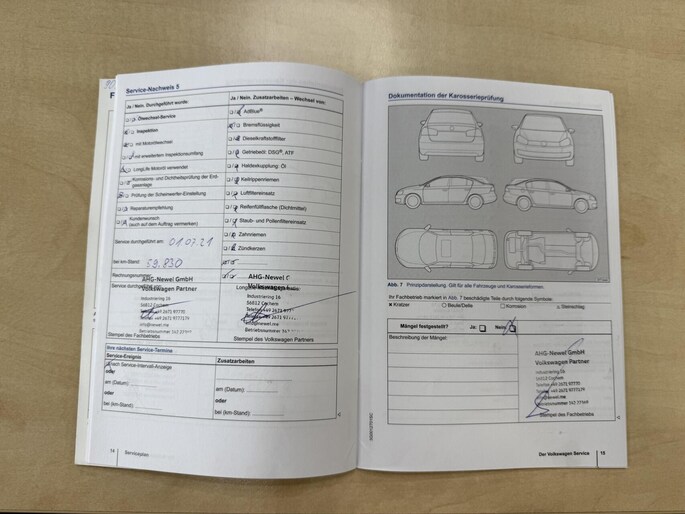 Service-Nachweis 5
Ja / Nein. Durchgeführt wurde:
Ölwechsel-Service
Inspektion
mit Motorölwechsel
mit erweitertem Inspektionsumfang
LongLife Motoröl verwendet
Korrosions- und Dichtheitsprüfung der Erdgasanlage
Prüfung der Scheinwerfer-Einstellung
Reparaturempfehlung
Kundenwunsch
(auch auf dem Auftrag vermerken)
Service durchgeführt am: 01.07.21
bei km-Stand: 59.830
Rechnungsnummer:
Service durchgeführt von:
AHG-Newel GmbH
Volkswagen Partner
Industriering 16
56812 Cochem
Telefon +49 2671 97770
info@newel.me
Stempel des Fachbetriebs
Ja / Nein. Zusatzarbeiten – Wechsel von:
AdBlue®
Bremsflüssigkeit
Dieselkraftstofffilter
Getriebeöl: DSG®, ATF
Haldexkupplung: Öl
Keilrippenriemen
Luftfiltereinsatz
Reifenfüllflasche (Dichtmittel)
Staub- und Pollenfiltereinsatz
Zahnriemen
Zündkerzen
AHG-Newel G
Volkswagen
Industriering 16
56812 Cochem
Telefon +49 2671 97770
Stempel des Volkswagen Partners
Ihre nächsten Service-Termine
Service-Ereignis
Zusatzarbeiten
nach Service-Intervall-Anzeige
oder
am (Datum):
oder
bei (km-Stand):
am (Datum):
oder
bei (km-Stand):
14
Serviceplan
Dokumentation der Karosserieprüfung
Abb. 7 Prinzipdarstellung. Gilt für alle Fahrzeuge und Karosserieformen.
Ihr Fachbetrieb markiert in Abb. 7 beschädigte Teile durch folgende Symbole:
Kratzer
Beule/Delle
Korrosion
Steinschlag
Mängel festgestellt? Ja: Nein:
Beschreibung der Mängel:
AHG-Newel GmbH
Volkswagen Partner
Industriering 16
56812 Cochem
Telefon +49 2671 97770
info@newel.me
Stempel des Fachbetriebs
Der Volkswagen Service
15